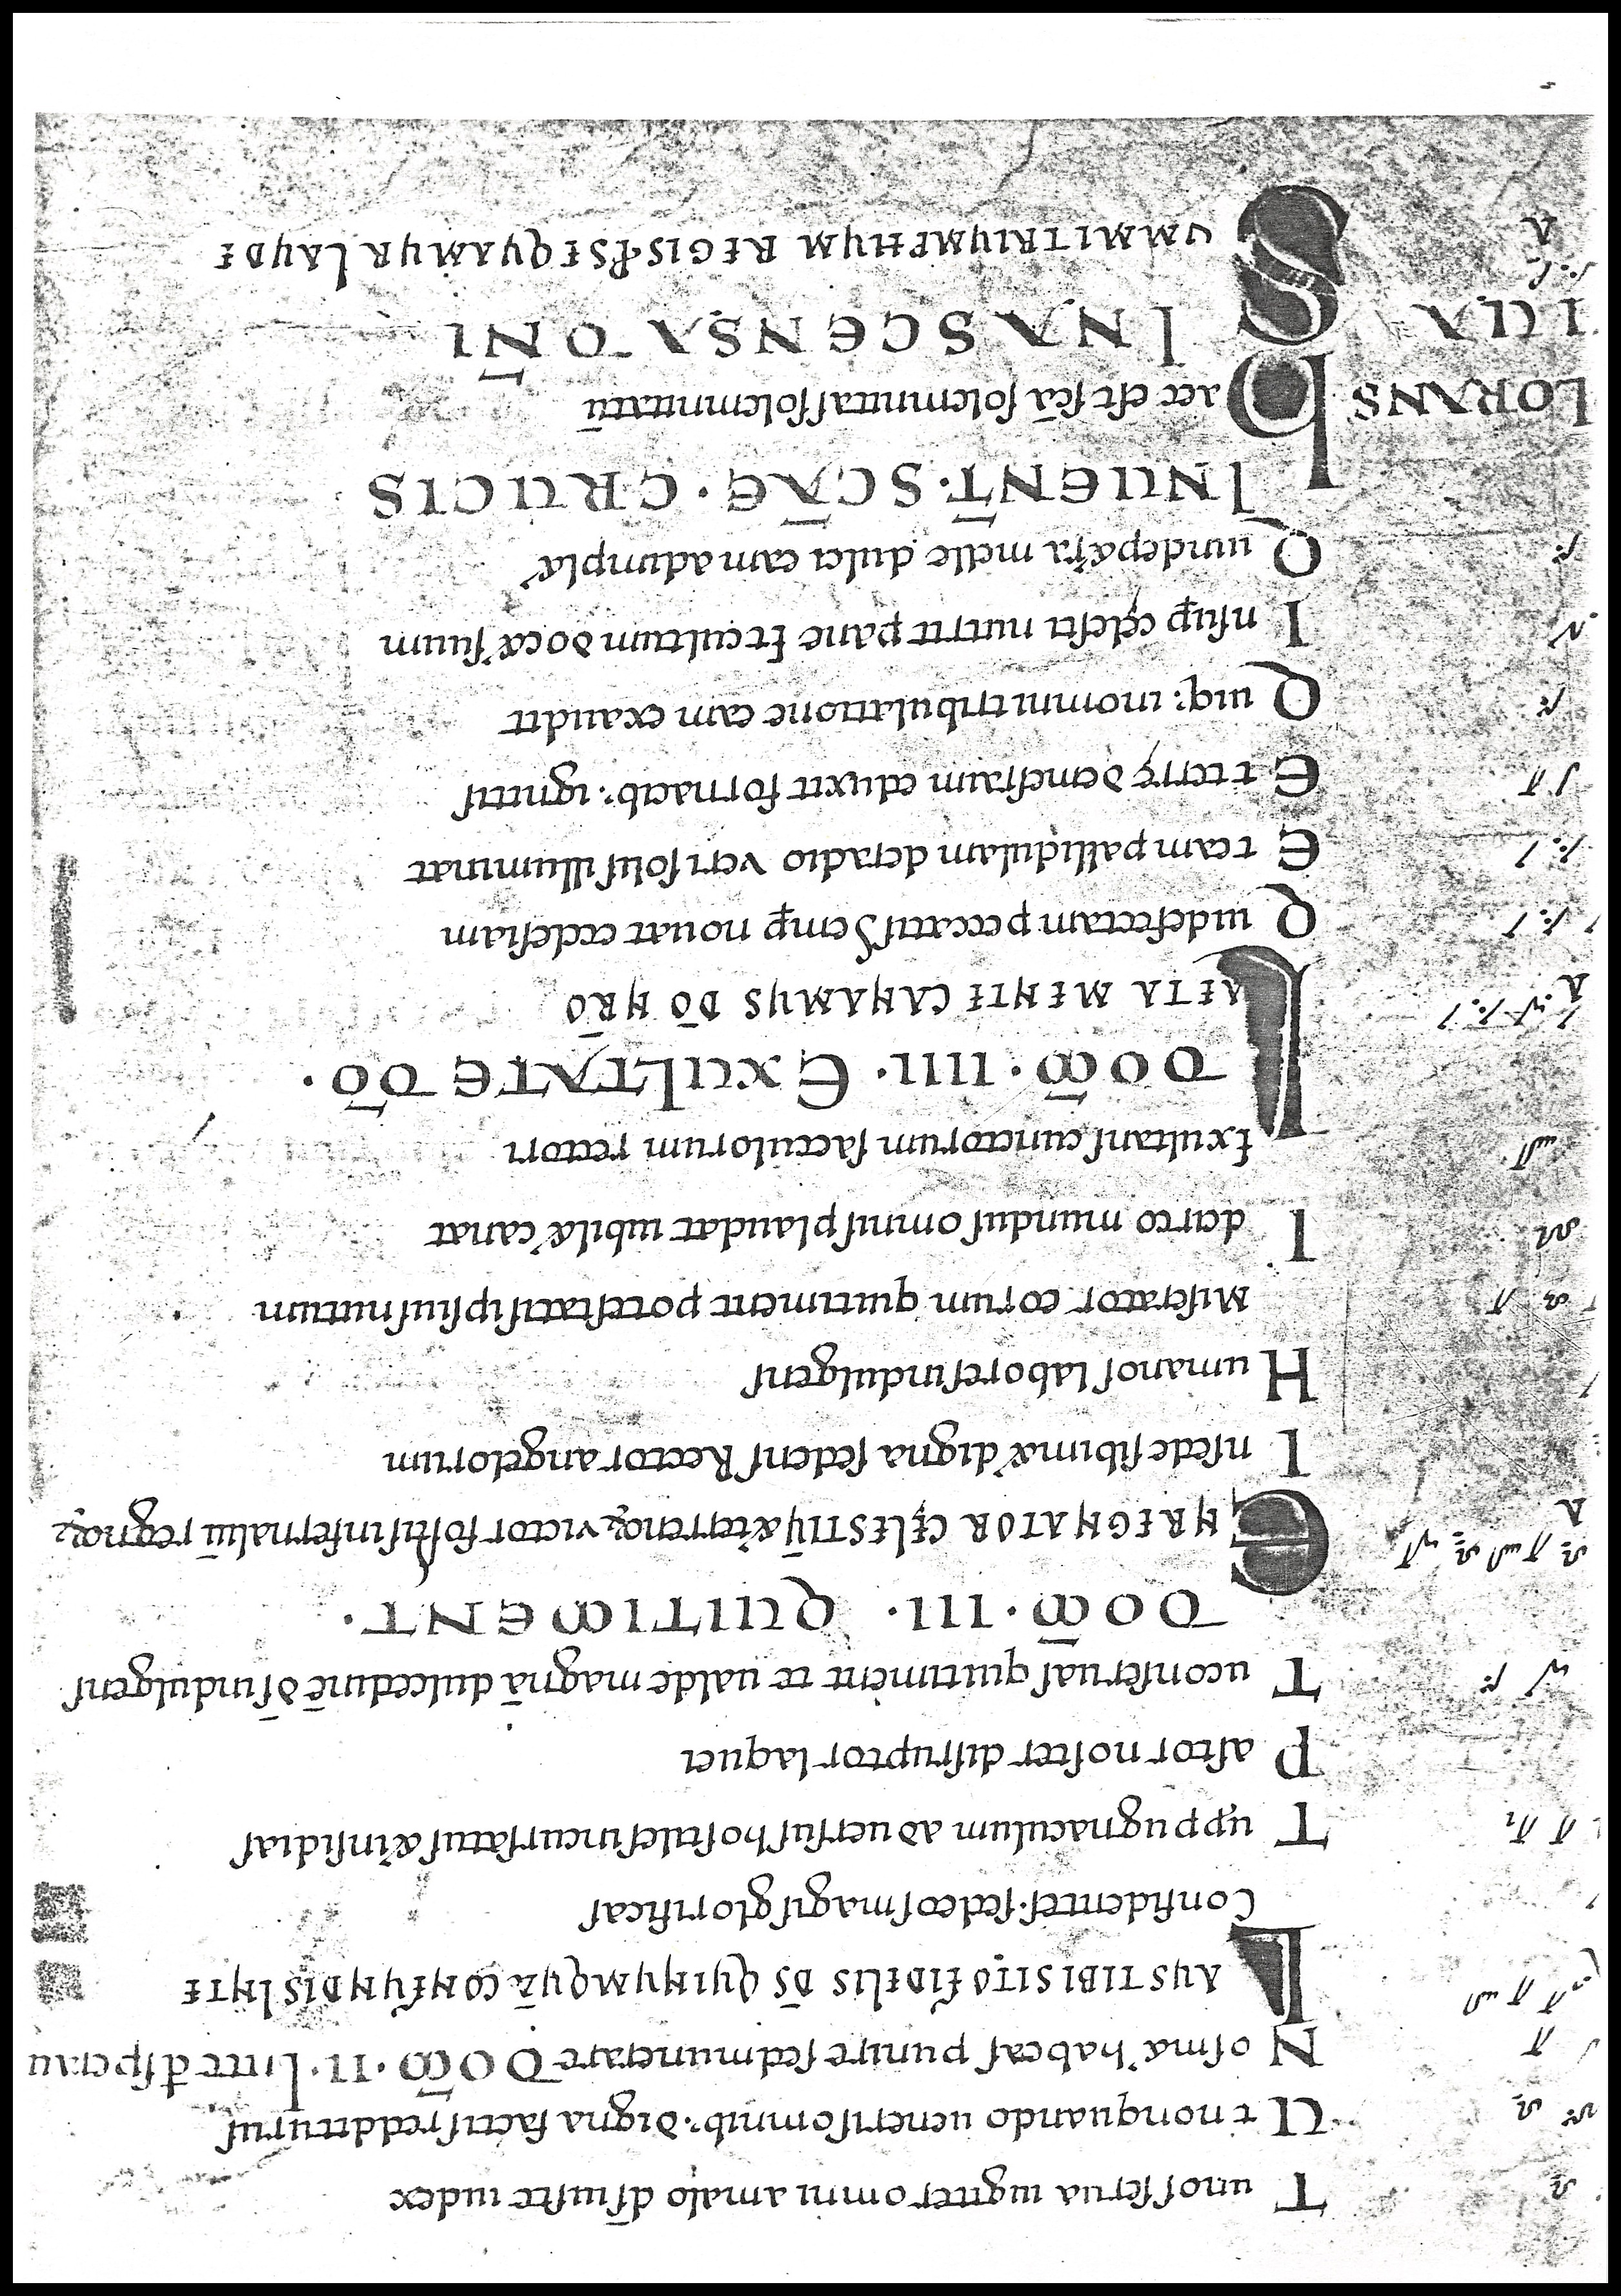 Tu nos serua iugiter omni amalo ds̄ iuste iudex
Ut nonquando ueneris omnib; digna factis redditurus
Nos n̄ habeas punire sed munerare DOM̄ · II · Inte d̄ speraui
LAUS TIBI SIT O FIDELIS DS̄ QUI NUMQUĀ CONFUNDIS INTE
Confidentes sed eos magis glorificas
Tu ꝓpugnaculum aduersus hostiles incursatus & insidias
Pastor noster disruptor laquei
Tu conseruas qui timent te ualde magnā dulcedinē ds̄ indulgens
DOM̄ · III · QUI TIMENT ·
EN REGNATOR CĘLESTIŪ & terrenoꝝ victor fortis infernaliū regnoꝝ
In sede sibim& digna sedens Rector angelorum
Humanos labores indulgens
Miserator eorum qui timent potestatis ipsius nutum
Idcirco mundus omnis plaudat iubil& canat
Exultans cunctorum saeculorum rectori
DOM̄ · IIII · EXULTATE DŌ ·
LAETA MENTE CANAMUS DŌ NRŌ
Qui defectam peccatis Semꝑ nouat ecclesiam
Et eam pallidulam de radio veri solis illuminat
Et eduxit fornacib; ignitis
Quiq: in omni tribulatione eam exaudit
Insuꝑ cęlesti nutrit pane Et cultum doc& suum
Quin de p&ra melle dulci eam adimpl&
INUENT̄ · SCĀE · CRUCIS
haec est scā solemnitas solemnitatū
IN ASCENSA DN̄I
SUMMI TRIUMPHUM REGIS ꝒSEQUAMUR LAUDE
LORANS
IUA